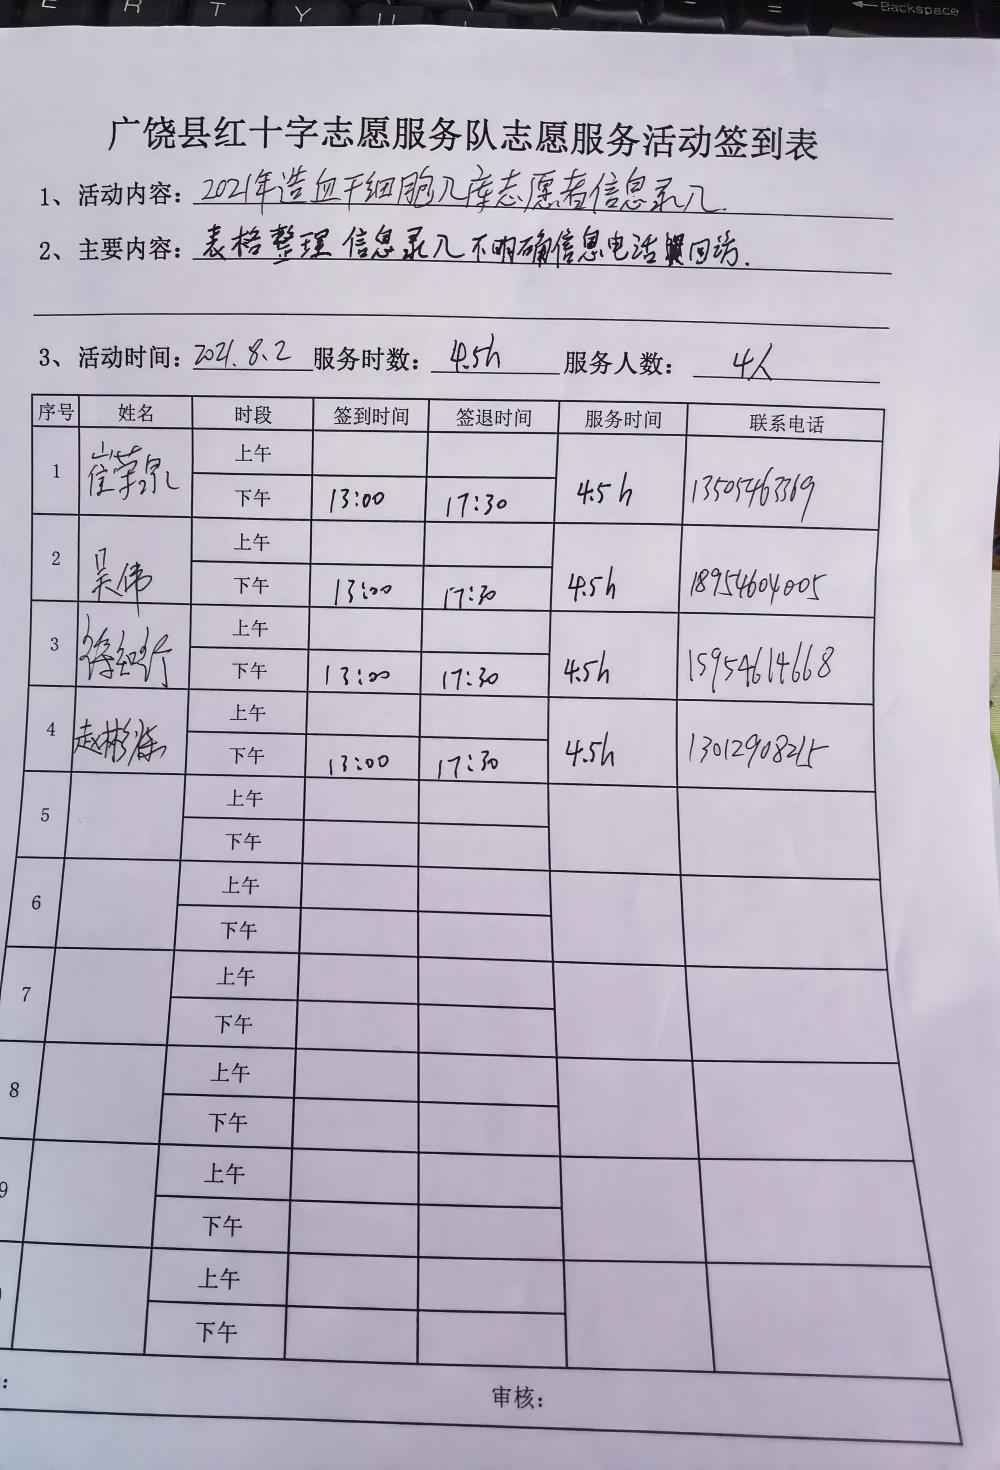 E R T Y U - = ←Backspace
广饶县红十字志愿服务队志愿服务活动签到表
1、活动内容：2021年造血干细胞入库志愿者信息录入.
2、主要内容：表格整理 信息录入 不明确信息电话回访.
3、活动时间：2021.8.2 服务时数：4.5h 服务人数：4人
序号 姓名 时段 签到时间 签退时间 服务时间 联系电话
1 崔荣泉 上午
下午 13:00 17:30 4.5h 13505463369
2 吴伟 上午
下午 13:00 17:30 4.5h 18954604005
3 上午
下午 13:00 17:30 4.5h 15954614668
4 赵彬 上午
下午 13:00 17:30 4.5h 13012908215
5 上午
下午
6 上午
下午
7 上午
下午
8 上午
下午
9 上午
下午
上午
下午
： 审核：